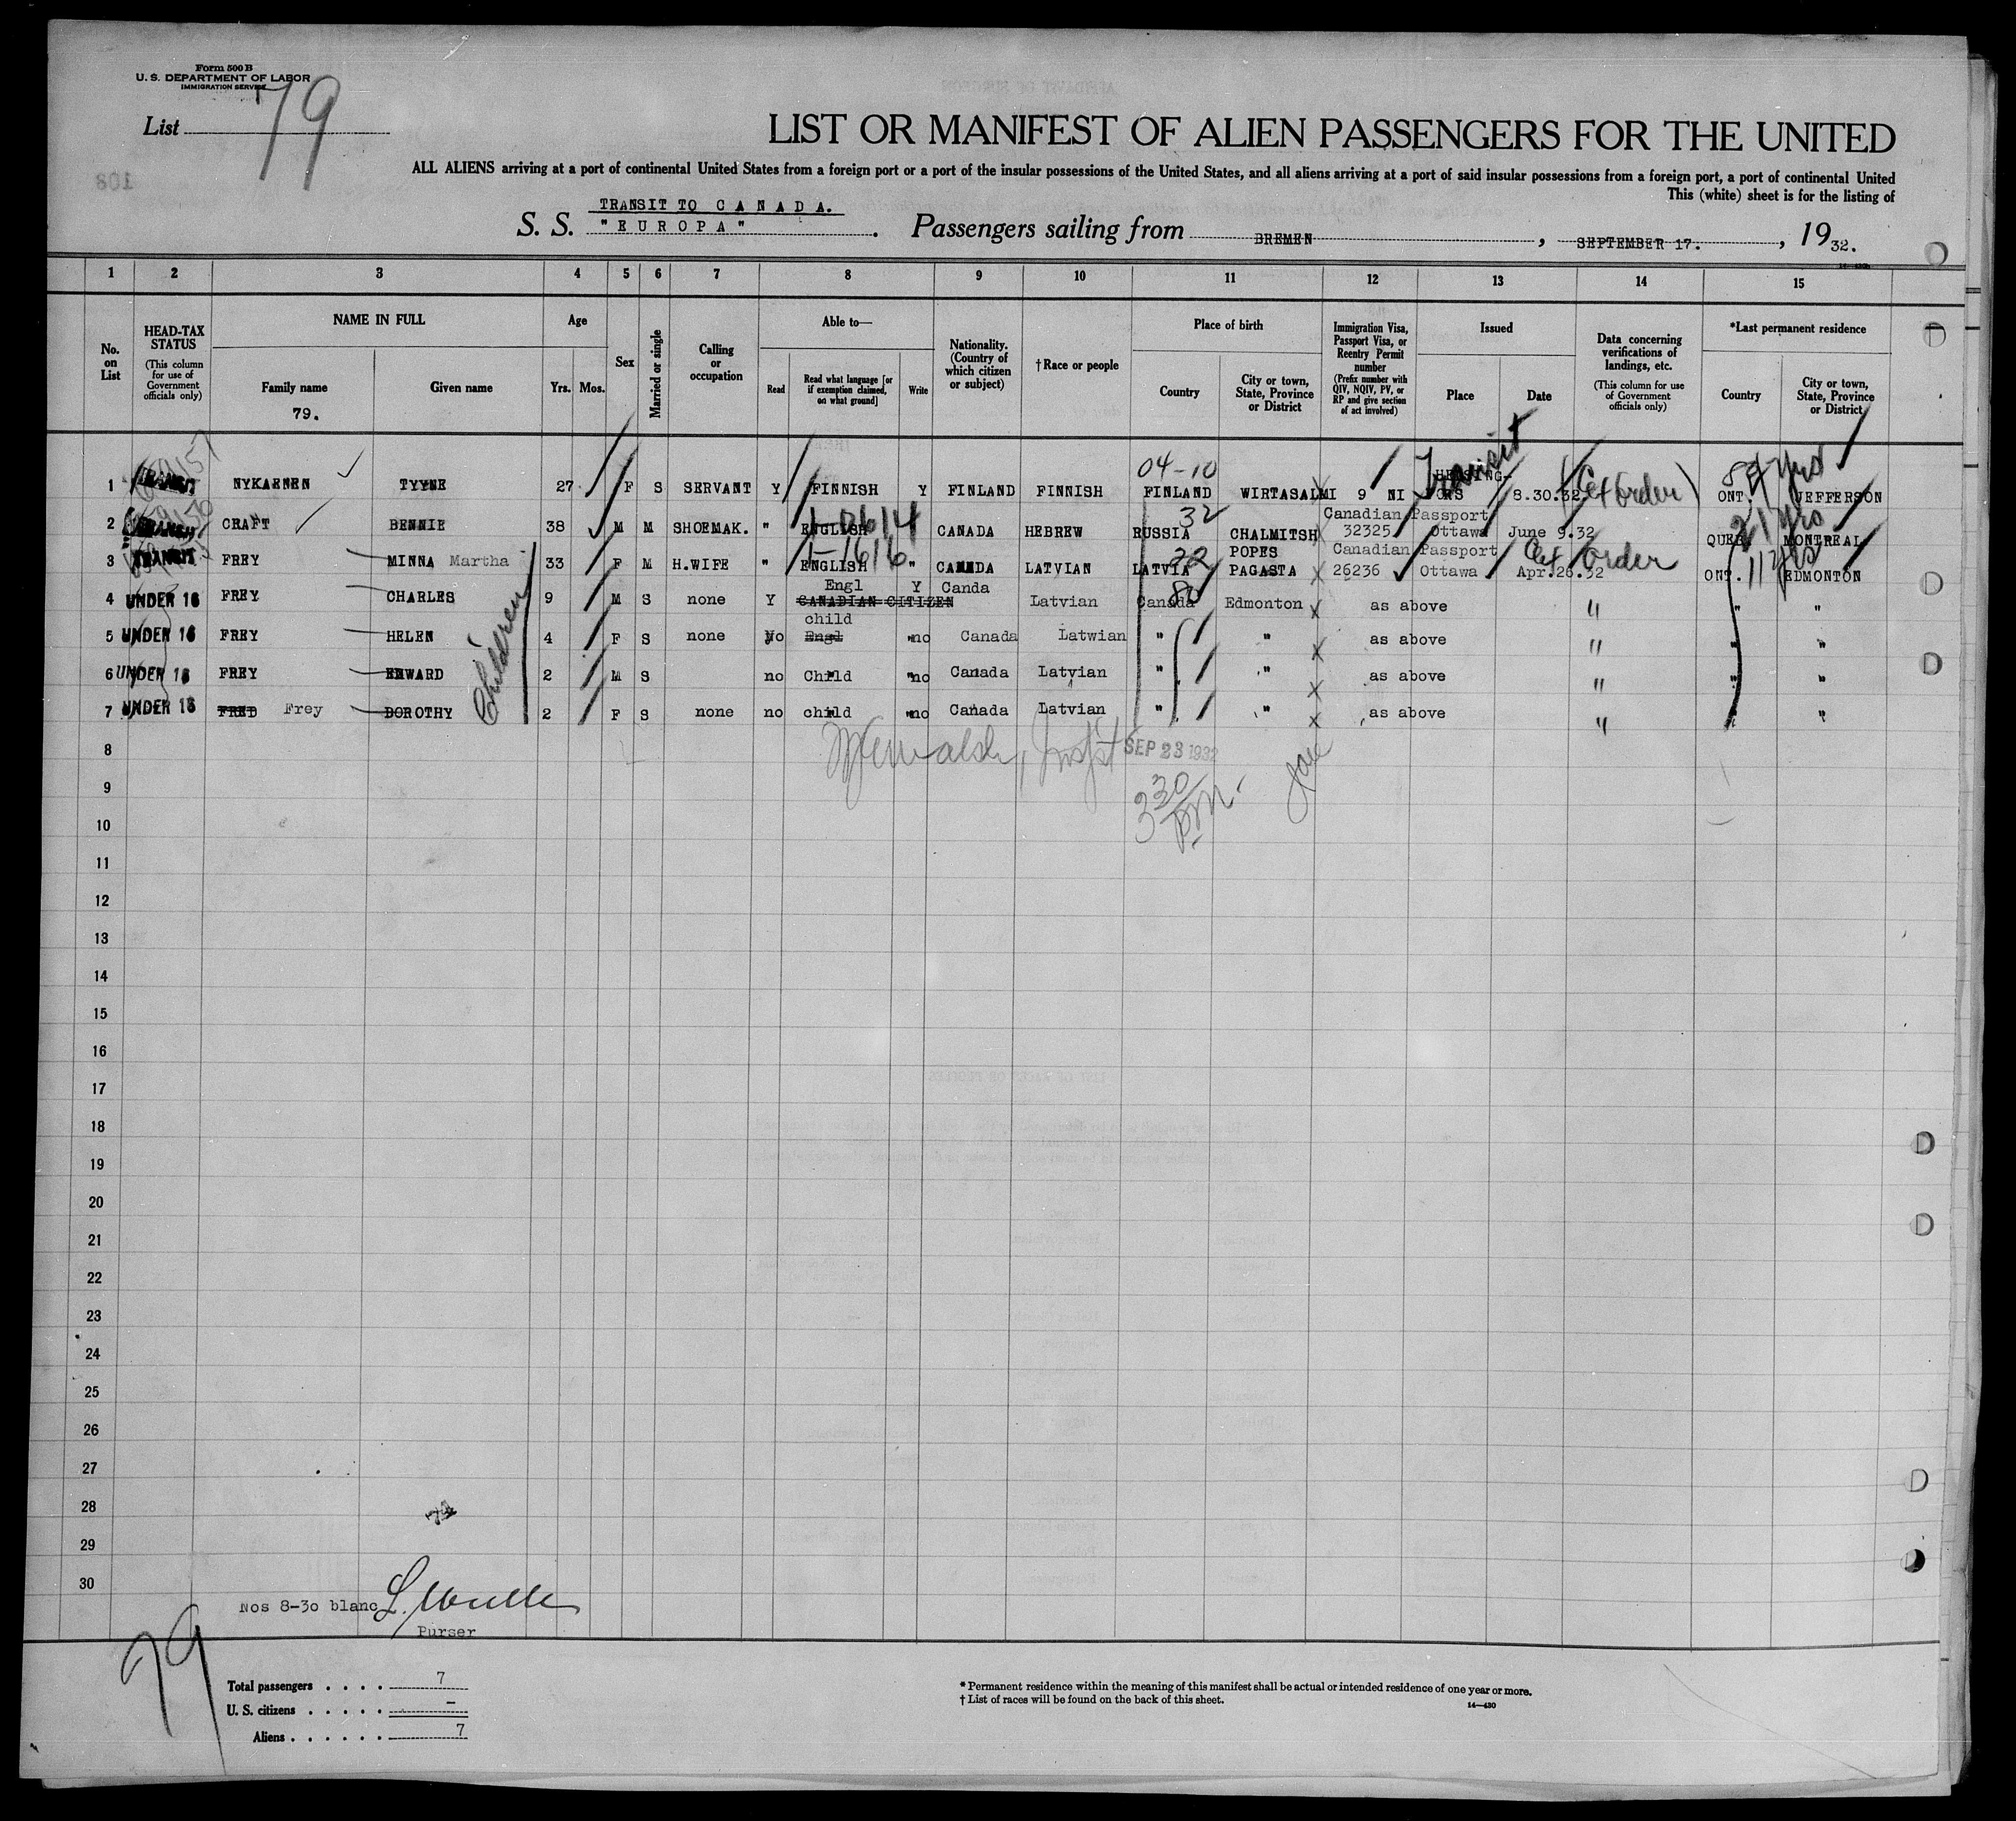 Form 500 B
U. S. DEPARTMENT OF LABOR
IMMIGRATION SERVICE
List 79
LIST OR MANIFEST OF ALIEN PASSENGERS FOR THE UNITED
ALL ALIENS arriving at a port of continental United States from a foreign port or a port of the insular possessions of the United States, and all aliens arriving at a port of said insular possessions from a foreign port, a port of continental United
This (white) sheet is for the listing of
TRANSIT TO CANADA.
S. S. "EUROPA". Passengers sailing from BREMEN, SEPTEMBER 17., 1932.
1 2 3 4 5 6 7 8 9 10 11 12 13 14 15
No. on List
HEAD-TAX STATUS (This column for use of Government officials only)
NAME IN FULL
Family name
Given name
79.
Age
Yrs. Mos.
Sex
Married or single
Calling or occupation
Able to—
Read
Read what language [or if exemption claimed, on what ground]
Write
Nationality. (Country of which citizen or subject)
†Race or people
Place of birth
Country
City or town, State, Province or District
Immigration Visa, Passport Visa, or Reentry Permit number (Prefix number with QIV, NQIV, PV, or RP and give section of act involved)
Issued
Place
Date
Data concerning verifications of landings, etc. (This column for use of Government officials only)
*Last permanent residence
Country
City or town, State, Province or District
04-10 Transit
1 TRANSIT NYKAENEN TYYNE 27 F S SERVANT Y FINNISH Y FINLAND FINNISH FINLAND WIRTASALMI 9 NI HELSING- 8.30.32 ONT. JEFFERSON
32 Canadian Passport 21 yrs
2 TRANSIT CRAFT BENNIE 38 M M SHOEMAK. " ENGLISH CANADA HEBREW RUSSIA CHALMITSH 32325 Ottawa June 9.32 QUEB. MONTREAL
POPES Canadian Passport 11 yrs
3 TRANSIT FREY MINNA Martha 33 F M H.WIFE " ENGLISH " CANADA LATVIAN LATVIA PAGASTA 26236 Ottawa Apr.26.32 order ONT. EDMONTON
Engl Y Canda
4 UNDER 16 FREY CHARLES 9 M S none Y CANADIAN CITIZEN Latvian Canada Edmonton as above " " "
child
5 UNDER 16 FREY HELEN 4 F S none No Engl "no Canada Latwian " " as above " " "
6 UNDER 16 FREY EDWARD 2 M S no Child "no Canada Latvian " " as above " " "
7 UNDER 16 FRED Frey DOROTHY 2 F S none no child "no Canada Latvian " " as above " " "
Children
8 SEP 23 1932
9 3 30 PM
10
11
12
13
14
15
16
17
18
19
20
21
22
23
24
25
26
27
28
29
30
Nos 8-30 blanc
Purser
79
Total passengers . . . . 7
U. S. citizens . . . . . –
Aliens . . . . . . 7
* Permanent residence within the meaning of this manifest shall be actual or intended residence of one year or more.
† List of races will be found on the back of this sheet.
14—430